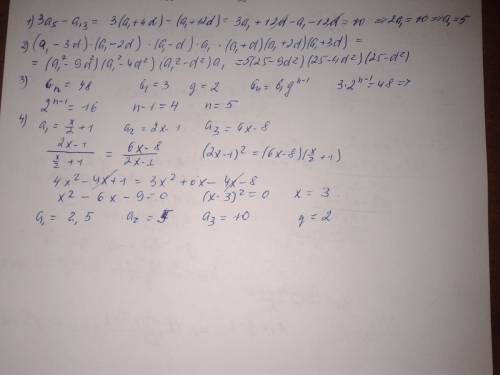 1) 3a5 - a13 = 3(a1+4d) - (a1+12d) = 3a1+12d-a1-12d=10 ⇒ 2a1=10 ⇒ a1=5
2) (a1-3d)·(a1-2d)·(a1-d)·a1·(a1+d)(a1+2d)(a1+3d) =
= (a1²-9d²)(a1²-4d²)(a1²-d²)a1 =5(25-9d²)(25-4d²)(25-d²)
3) bn = 48 b1 = 3 q = 2 bn = b1q^n-1 3·2^n-1=48 ⇒
2^n-1 = 16 n-1=4 n=5
4) a1 = x/2 + 1 a2 = 2x-1 a3 = 6x-8
(2x-1)/(x/2+1) = (6x-8)/(2x-1) (2x-1)² = (6x-8)(x/2+1)
4x²-4x+1 = 3x²+6x-4x-8
x²-6x-9=0 (x-3)²=0 x = 3
a1 = 2,5 a2 = 5 a3 = 10 q = 2